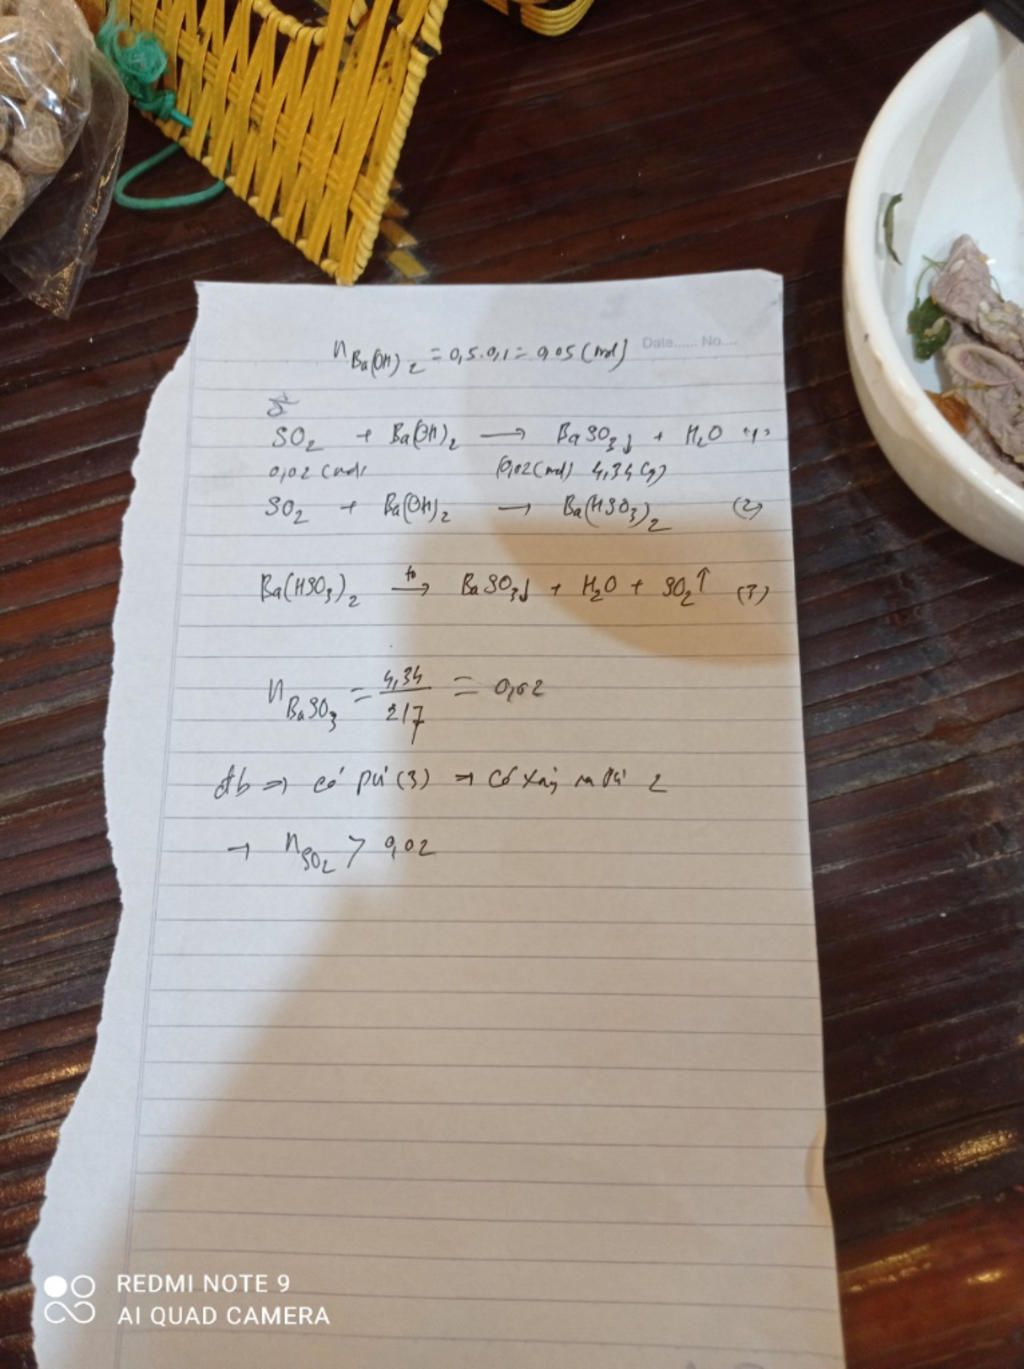 Date...... No....
n Ba(OH)2 = 0,5.0,1 = 0,05 (mol)
SO2 + Ba(OH)2 → BaSO3↓ + H2O (1)
0,02 (mol) (0,02 (mol) 4,34 (g)
SO2 + Ba(OH)2 → Ba(HSO3)2 (2)
Ba(HSO3)2 →to BaSO3↓ + H2O + SO2↑ (3)
n BaSO3 = 4,34/217 = 0,02
đb ⇒ có pứ (3) ⇒ có xảy ra pứ 2
→ n SO2 > 0,02
REDMI NOTE 9
AI QUAD CAMERA